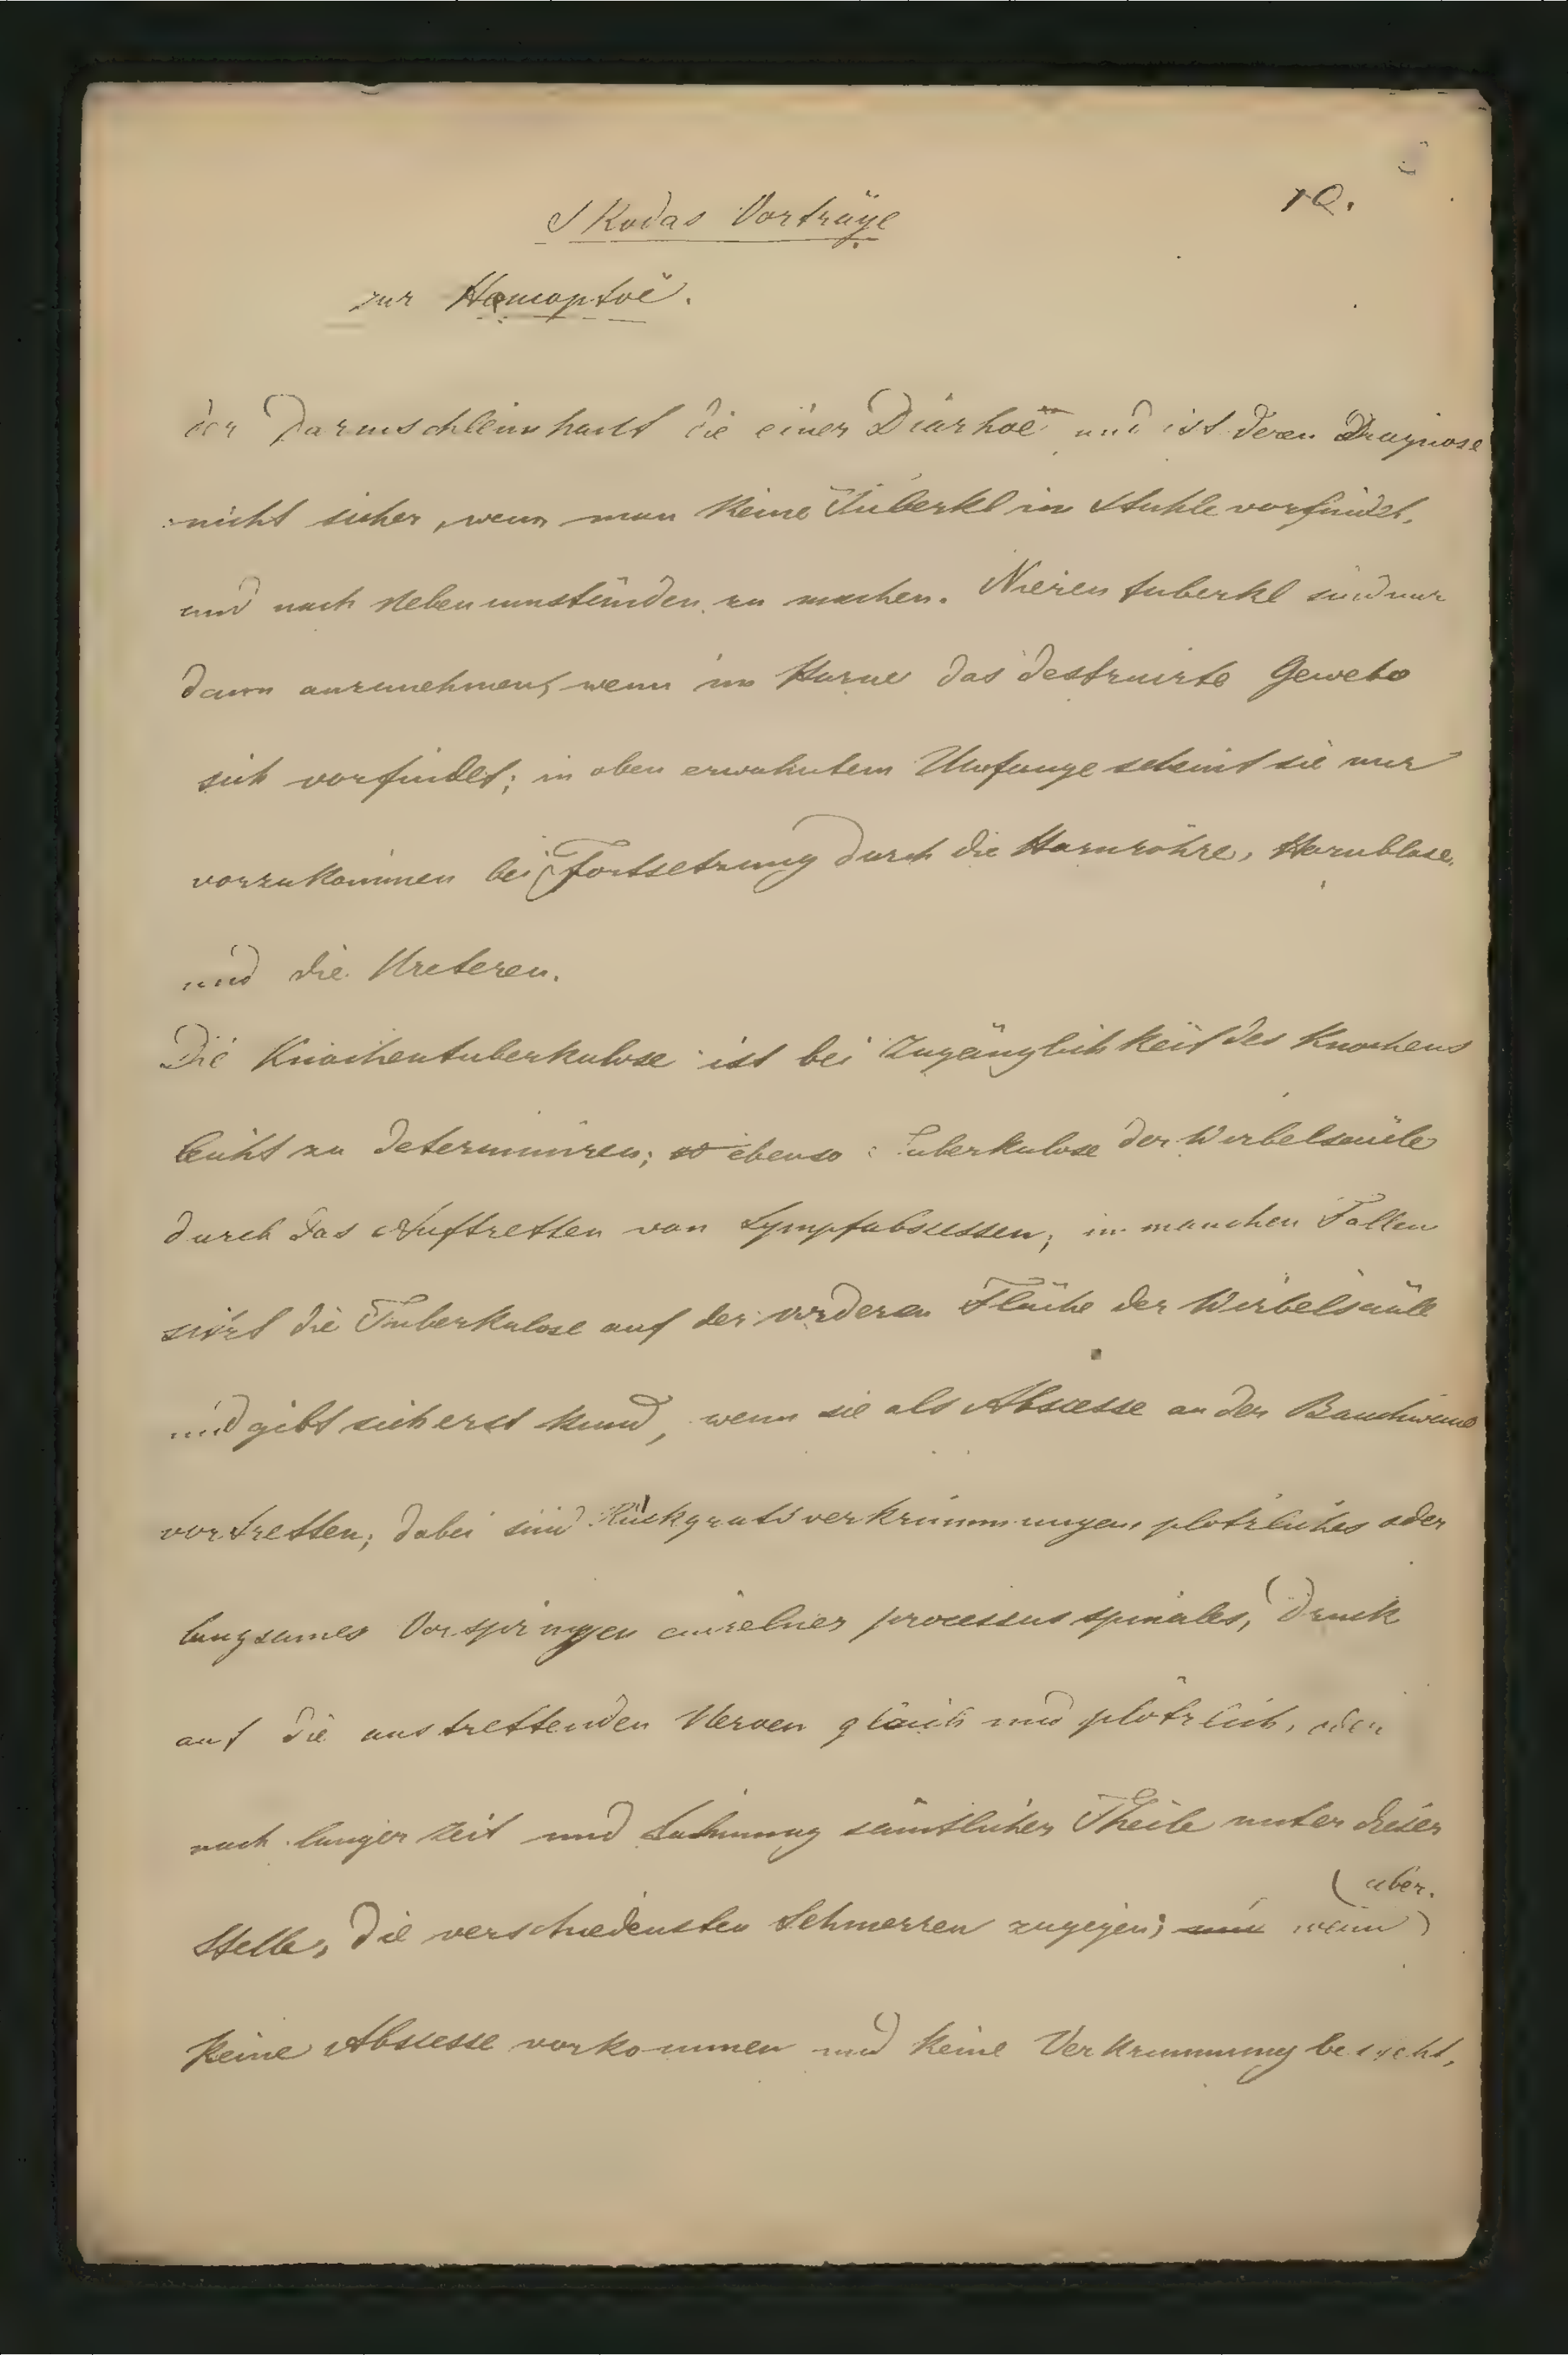 10.
Skodas Vorträge
zur Hæmoptoë.
der Darmschleimhaut die einer Diarhoë und ist deren Diagnose
nicht sicher, wenn man keine Tuberkl im Stuhle vorfindet,
und nach Nebenumständen zu machen. Nierentuberkl sind nur
dann anzunehmen, wenn im Harne das destruirte Gewebe
sich vorfindet; in oben erwahntem Umfange scheint sie nur
vorzukommen bei Fortsetzung durch die Harnröhre, Harnblase,
und die Ureteren.
Die Knochentuberkulose ist bei Zugänglichkeit des Knochens
leicht zu determiniren; so ebenso Tuberkulose der Wirbelsäule
durch das Auftretten von Lympfabscessen; in manchen Fallen
sizt die Tuberkulose auf der vorderen Fläche der Wirbelsäule
und gibt sich erst kund, wenn sie als Abscesse an der Bauchwand
vortretten; dabei sind Rückgratsverkrümmungen, plotzliches oder
langsames Vorspringen einzelner processus spinales, Druck
auf die austrettenden Nerven gleich und plötzlich, oder
nach langer Zeit und Lähmung sämtlicher Theile unter dieser
Stelle, die verschiedensten Schmerzen zugegen; wenn (aber)
keine Abscesse vorkommen und keine Verkrummung besteht,